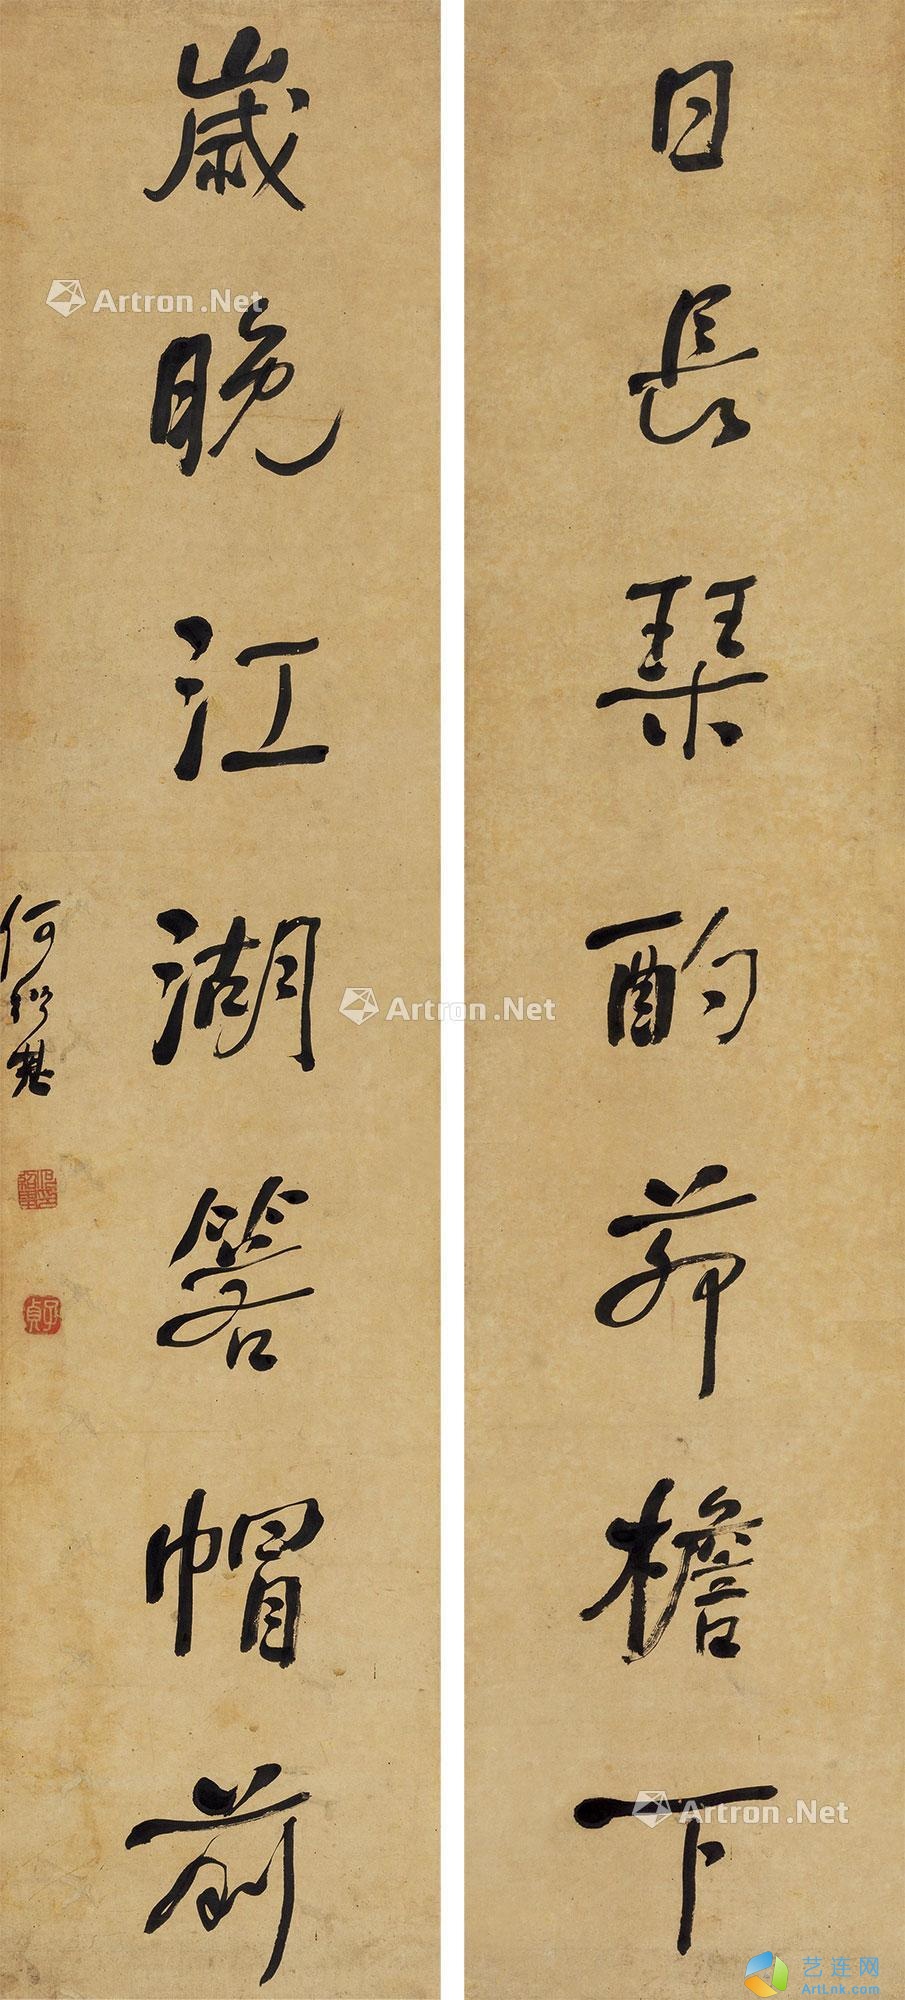 日長琴酌茆檐下
歲晚江湖箬帽前
何紹基
子貞
Artron.Net
Artron.Net
Artron.Net
艺连网
ArtLnk.com